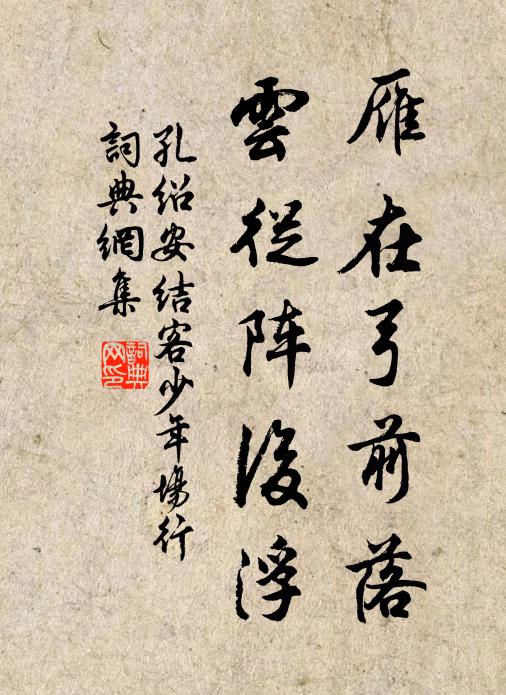 雁在弓前落
雲從阵後浮
孔绍安結客少年場行
詞典網集
詞典网印